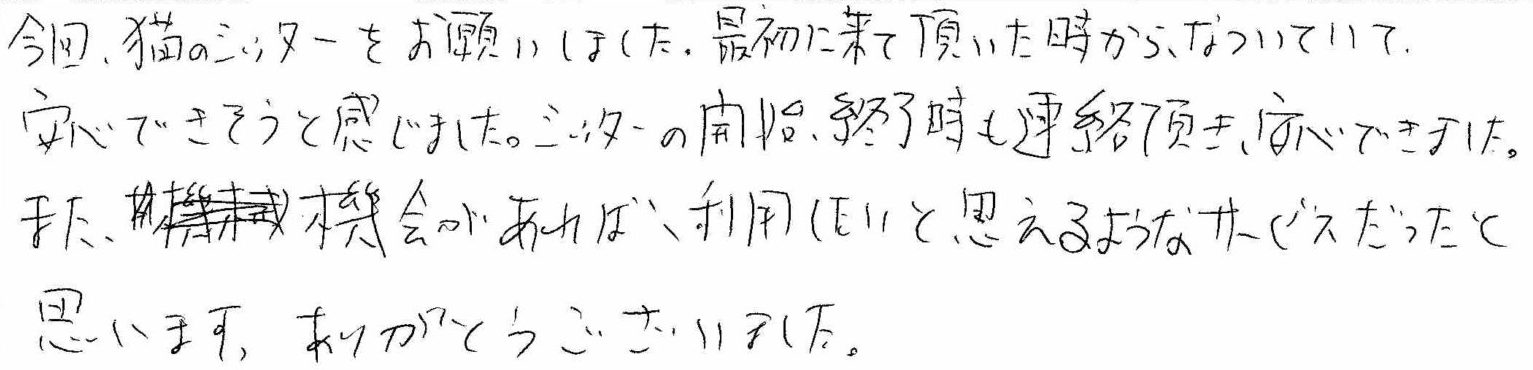 今回、猫のシッターをお願いしました。最初に来て頂いた時から、なついていて、
安心できそうと感じました。シッターの開始、終了時も連絡頂き、安心できました。
また、機会があれば、利用したいと思えるようなサービスだったと
思います。ありがとうございました。